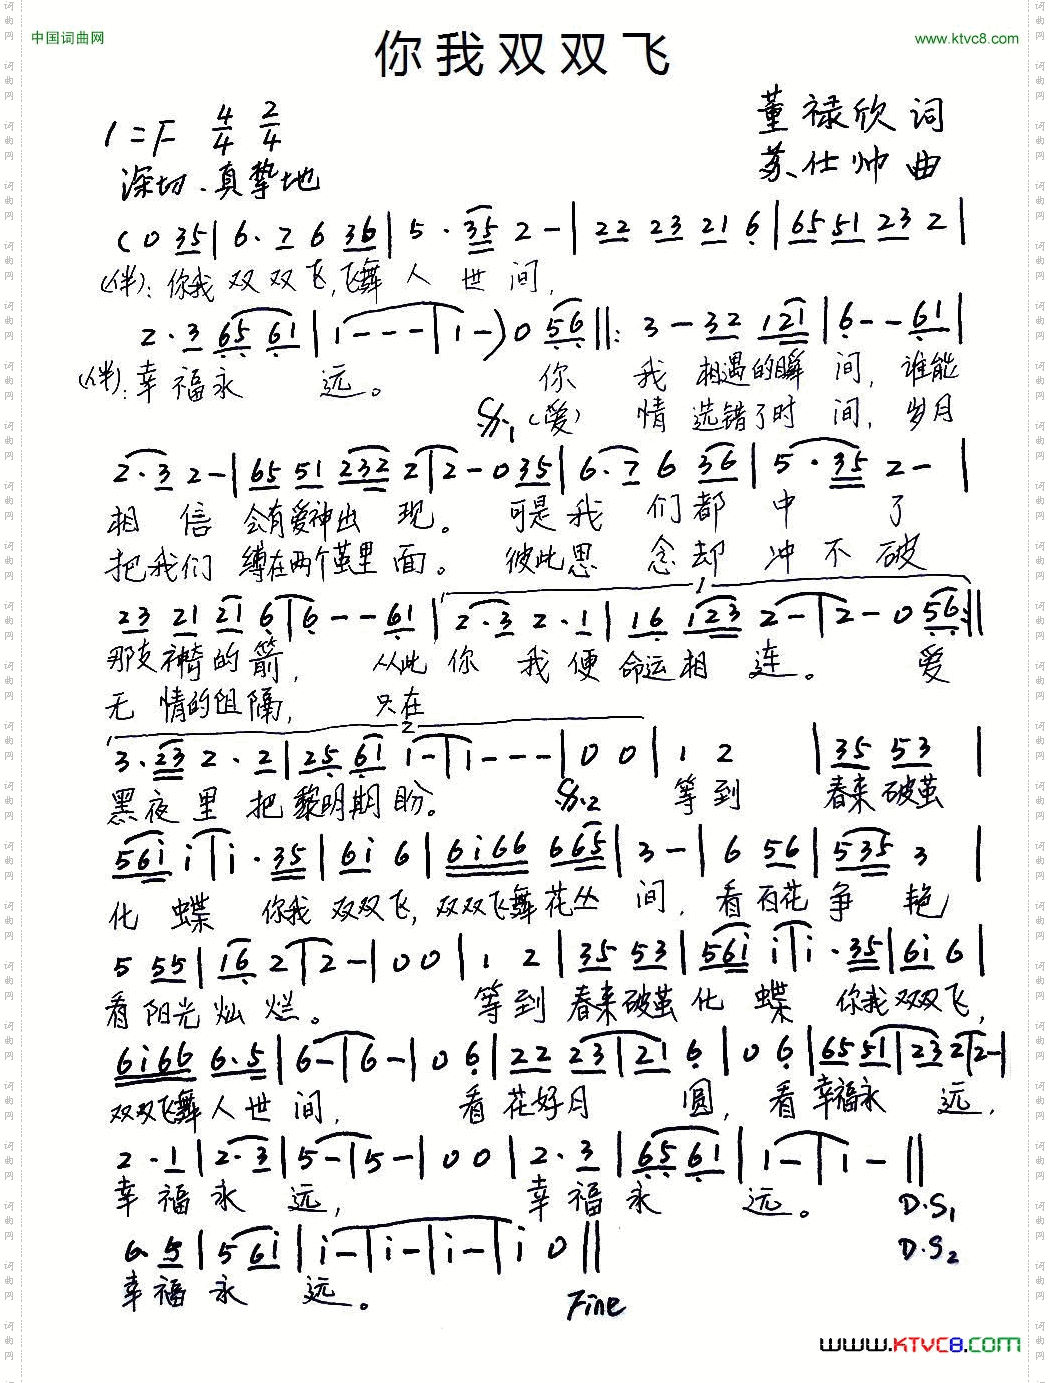 中国词曲网
www.ktvc8.com
你我双双飞
1=F 4/4 2/4
董禄欣 词
苏仕帅 曲
深切、真挚地
(0 35 | 6. 7 6 36 | 5 . 35 2 - | 22 23 21 6 | 65 51 23 2 |
(伴): 你我 双 双 飞, 飞舞 人 世 间,
2 . 3 65 61 | 1 - - - | 1 - ) 0 56 ||: 3 - 32 121 | 6 - - 61 |
(伴): 幸 福永 远。 你 我 相遇的瞬 间, 谁能
𝄋1 (爱) 情 选错了时 间, 岁月
2 . 3 2 - | 65 51 232 2 | 2 - 0 35 | 6 . 7 6 36 | 5 . 35 2 - |
相 信 会有爱神出 现。 可是 我 们 都 中 了
把我们 缚在两个茧里 面。 彼此思 念却 冲 不 破
23 21 21 6 | 6 - - 61 | 2 . 3 2 . 1 | 16 123 2 - | 2 - 0 56 :||
1
那支神奇的 箭, 从此 你 我 便 命运相 连。 爱
无 情的阻 隔, 只在
2
3 . 23 2 . 2 | 25 61 1 - | 1 - - - | 0 0 | 1 2 | 35 53 |
黑夜 里 把 黎明期 盼。 𝄋2 等 到 春来 破茧
561 i | i . 35 | 6i 6 | 6i66 665 | 3 - | 6 56 | 535 3 |
化 蝶 你我 双双飞, 双双飞舞花丛 间, 看 百花 争 艳
5 55 | 16 2 | 2 - | 0 0 | 1 2 | 35 53 | 56i i | i . 35 | 6i 6 |
看 阳光 灿 烂。 等 到 春来破茧 化 蝶 你我 双双飞,
6i66 6.5 | 6 - | 6 - | 0 6 | 22 23 | 21 6 | 0 6 | 65 51 | 23 2 | 2 - |
双双飞舞 人 世 间, 看 花好月 圆, 看 幸福永 远,
2 . 1 | 2 . 3 | 5 - | 5 - | 0 0 | 2 . 3 | 65 61 | 1 - | 1 - ||
幸 福 永 远, 幸 福 永 远。 D.S1
D.S2
6. 5 | 5 6i | i - | i - | i - | i 0 ||
幸 福 永 远。 Fine
www.KTVC8.com